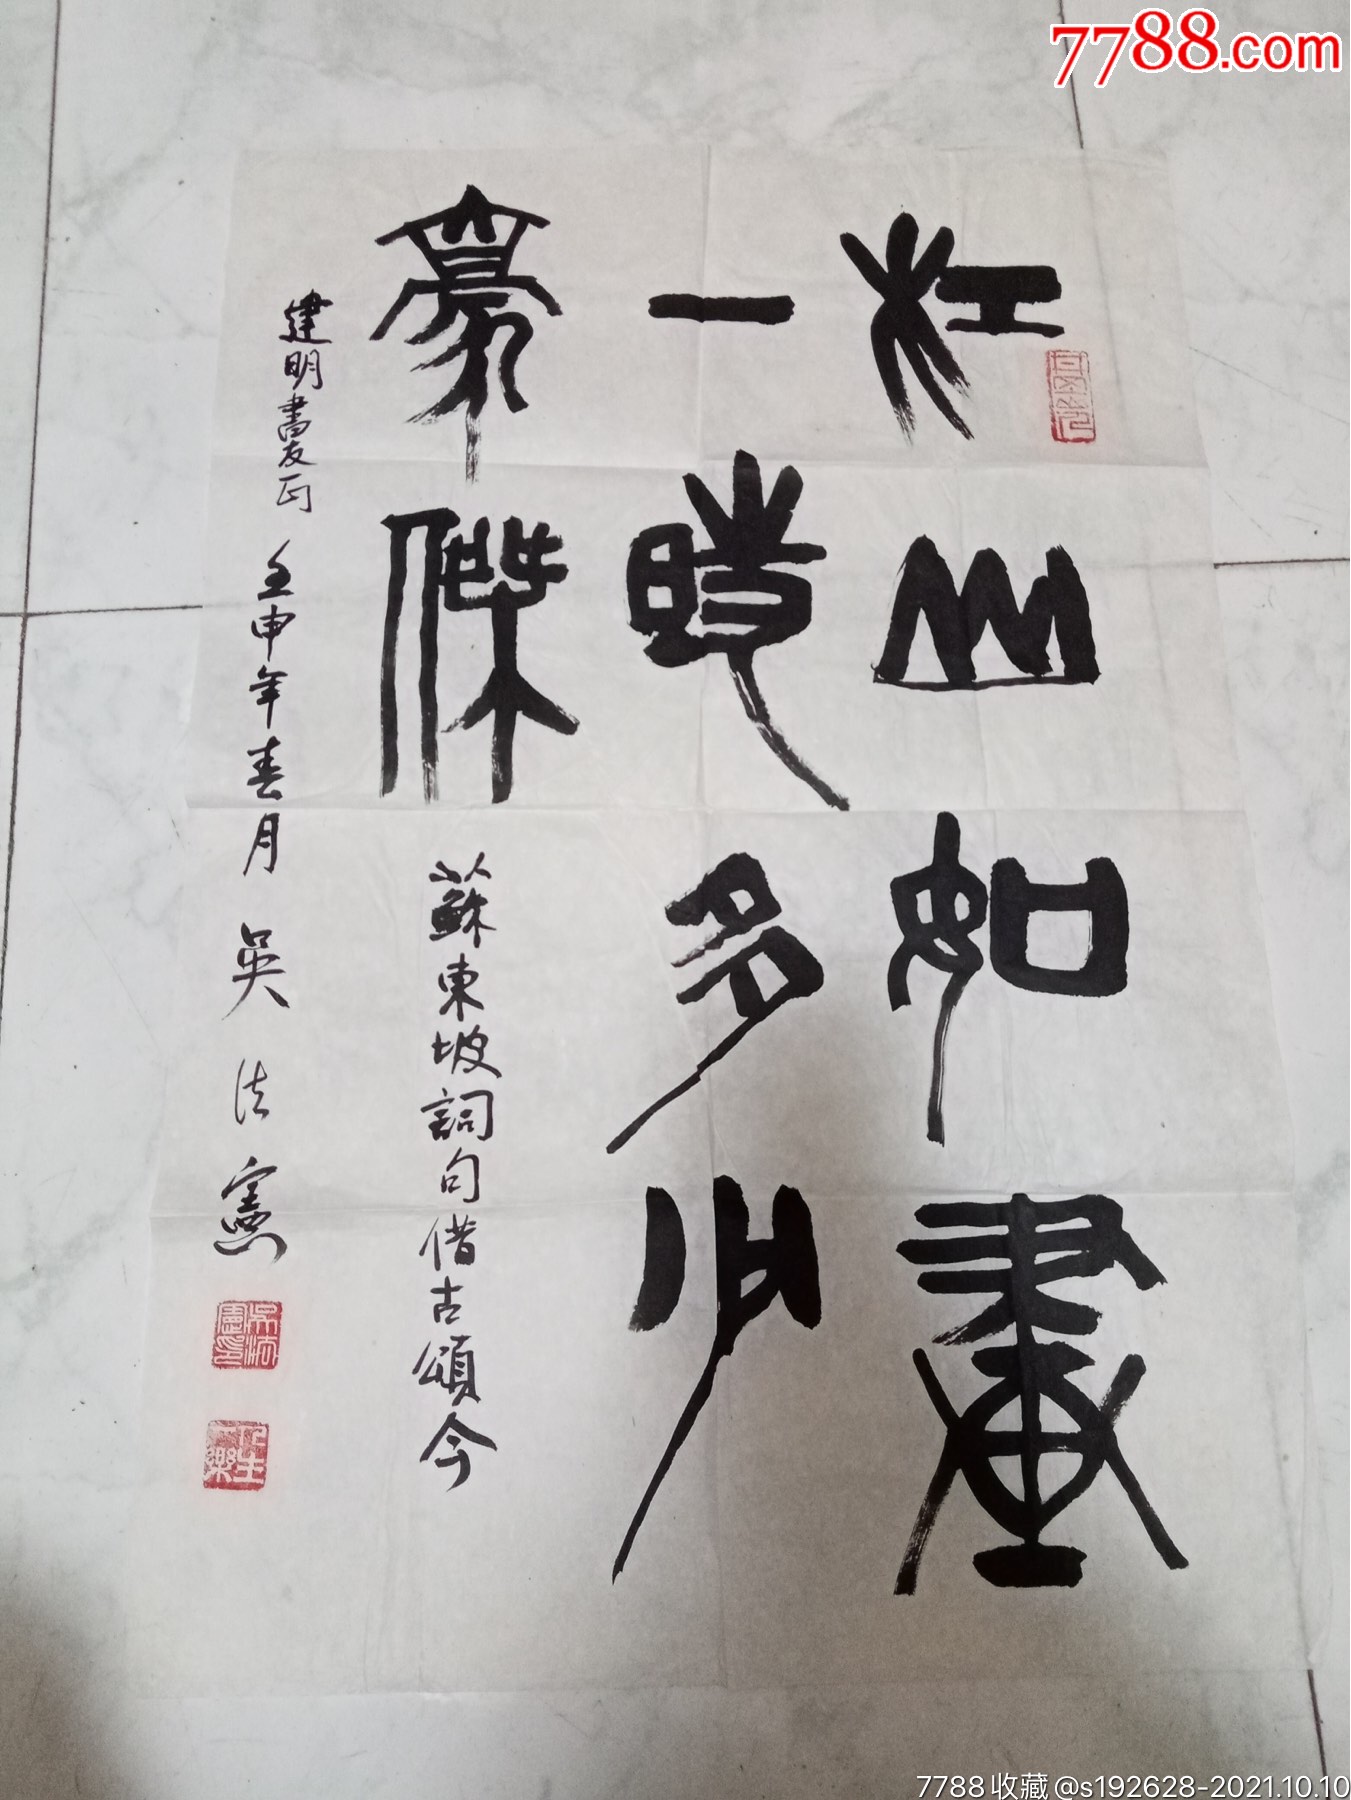 7788.com
江山如畫
一時多少
豪傑
蘇東坡詞句借古頌今
建明書友正 壬申年春月 吳法憲
吳法憲印
7788收藏@s192628-2021.10.10